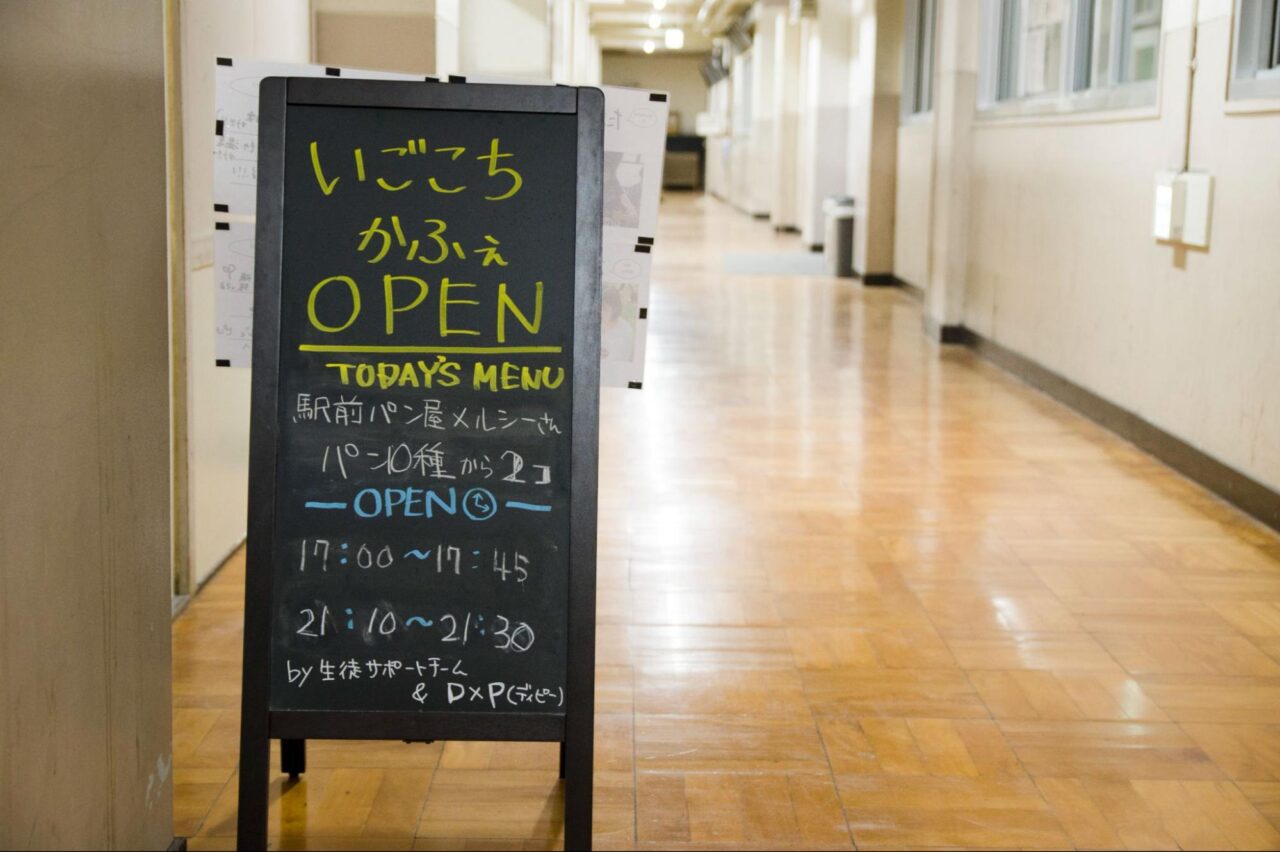 いごこち
かふぇ
OPEN
TODAY'S MENU
駅前パン屋メルシーさん
パン10種から2コ
OPEN
17:00~17:45
21:10~21:30
by 生徒サポートチーム
& D×P(ディピー)